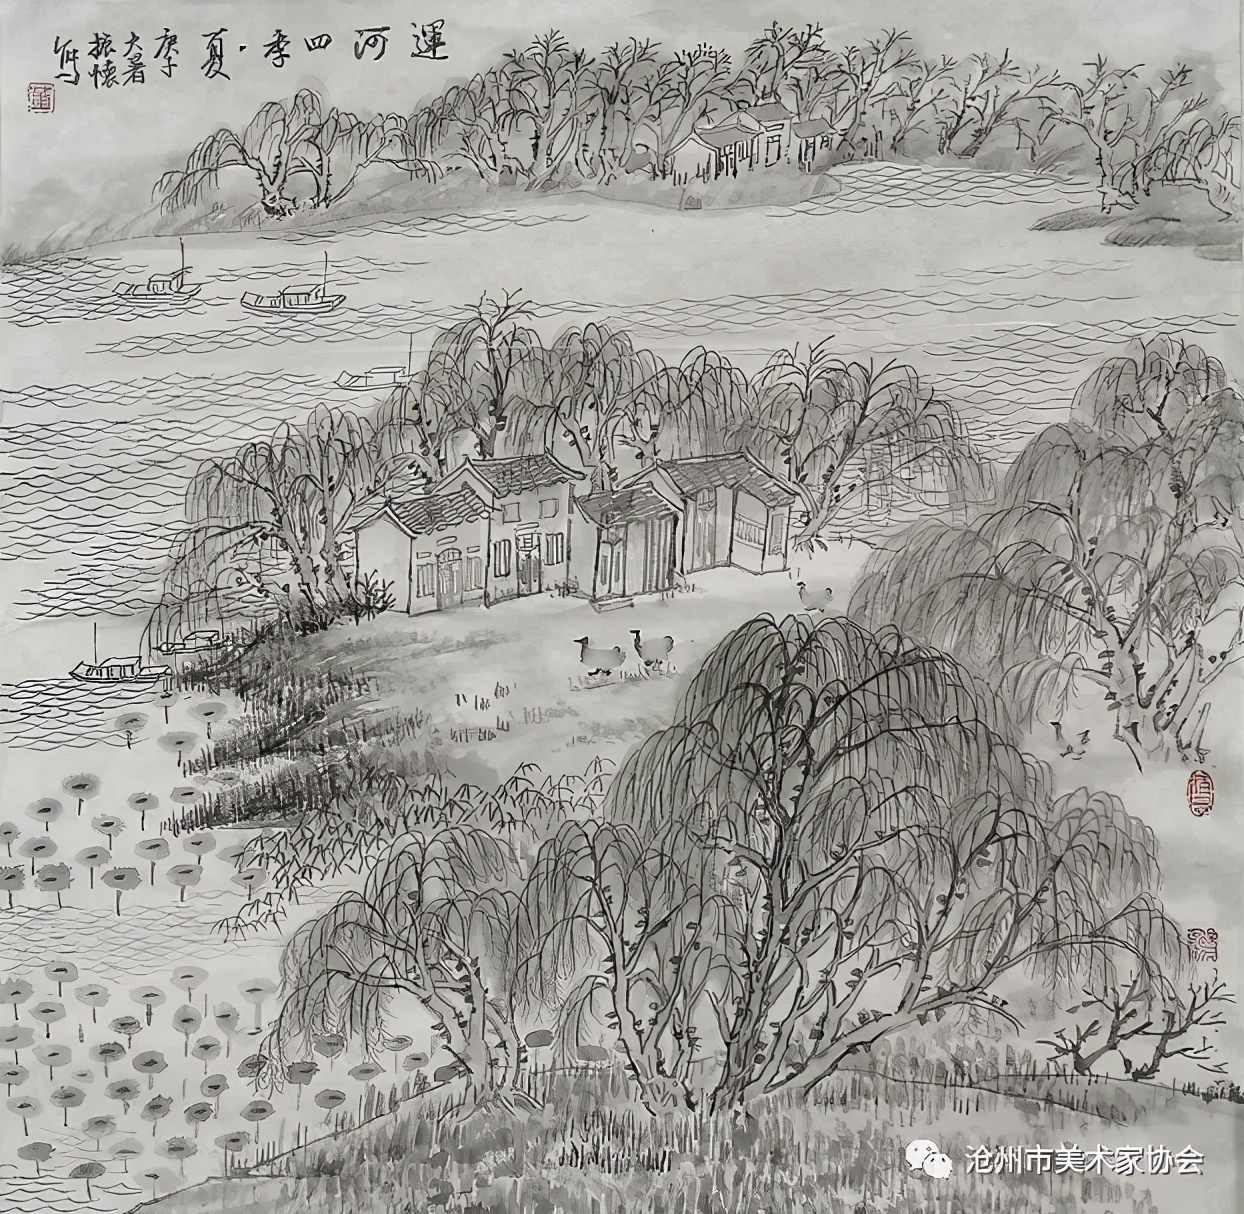 運河四季·夏
庚子
大暑
振懷
寫
沧州市美术家协会